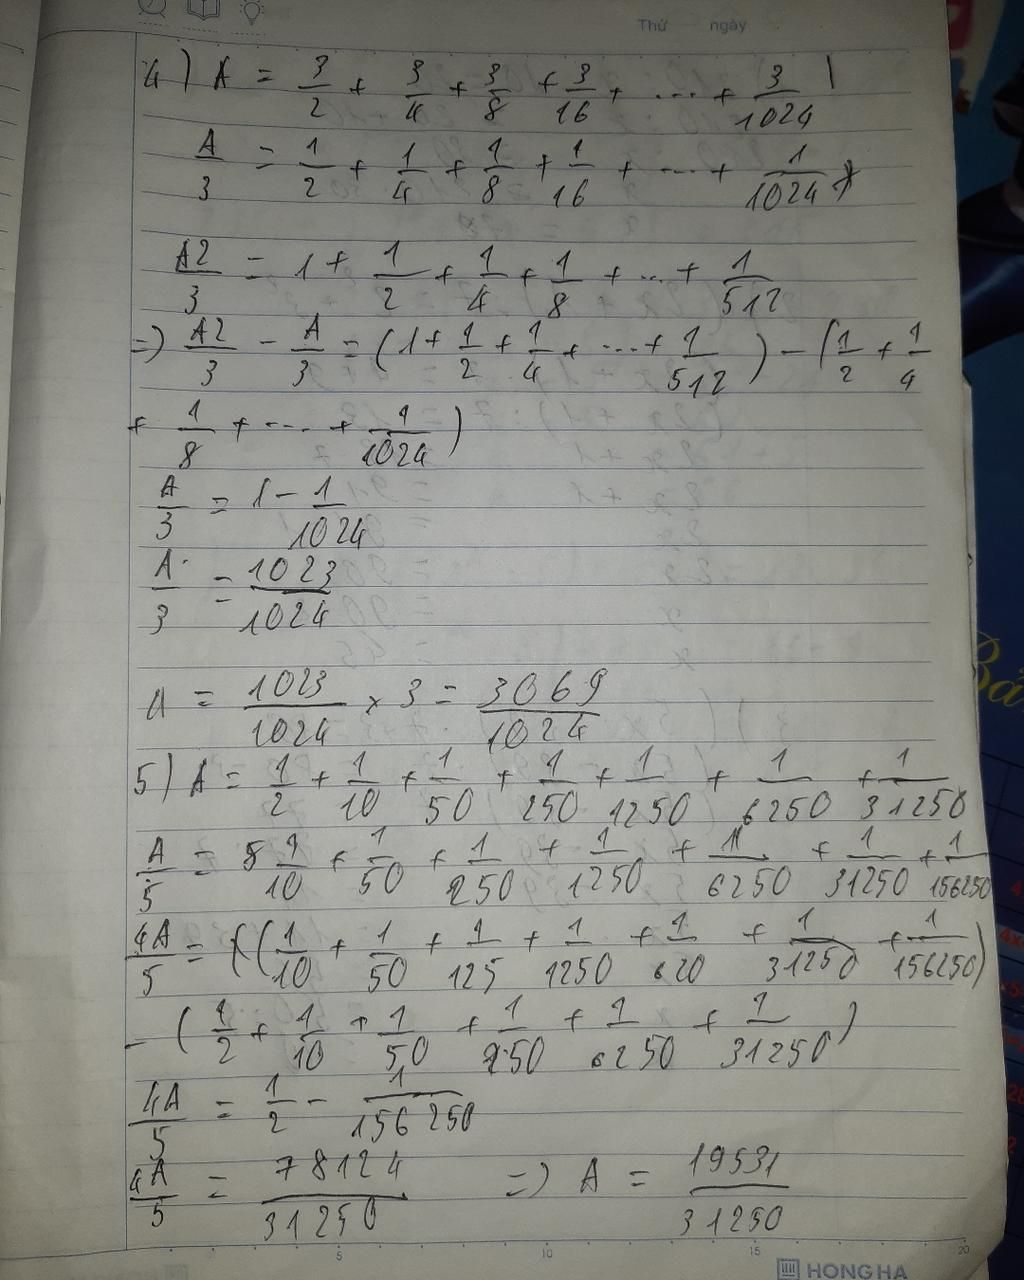 Thứ ngày
4) A = 3/2 + 3/4 + 3/8 + 3/16 + .... + 3/1024
A/3 = 1/2 + 1/4 + 1/8 + 1/16 + .... + 1/1024
A2/3 = 1 + 1/2 + 1/4 + 1/8 + ... + 1/512
=) A2/3 - A/3 = (1 + 1/2 + 1/4 + .... + 1/512) - (1/2 + 1/4
+ 1/8 + .... + 1/1024)
A/3 = 1 - 1/1024
A/3 = 1023/1024
A = 1023/1024 x 3 = 3069/1024
5) A = 1/2 + 1/10 + 1/50 + 1/250 + 1/1250 + 1/6250 + 1/31250
A/5 = 1/10 + 1/50 + 1/250 + 1/1250 + 1/6250 + 1/31250 + 1/156250
4A/5 = ((1/10 + 1/50 + 1/125 + 1/1250 + 1/620 + 1/31250 + 1/156250)
- (1/2 + 1/10 + 1/50 + 1/250 + 1/6250 + 1/31250)
4A/5 = 1/2 - 1/156250
4A/5 = 78124/31250 =) A = 19531/31250
5 10 15 20
HONG HA